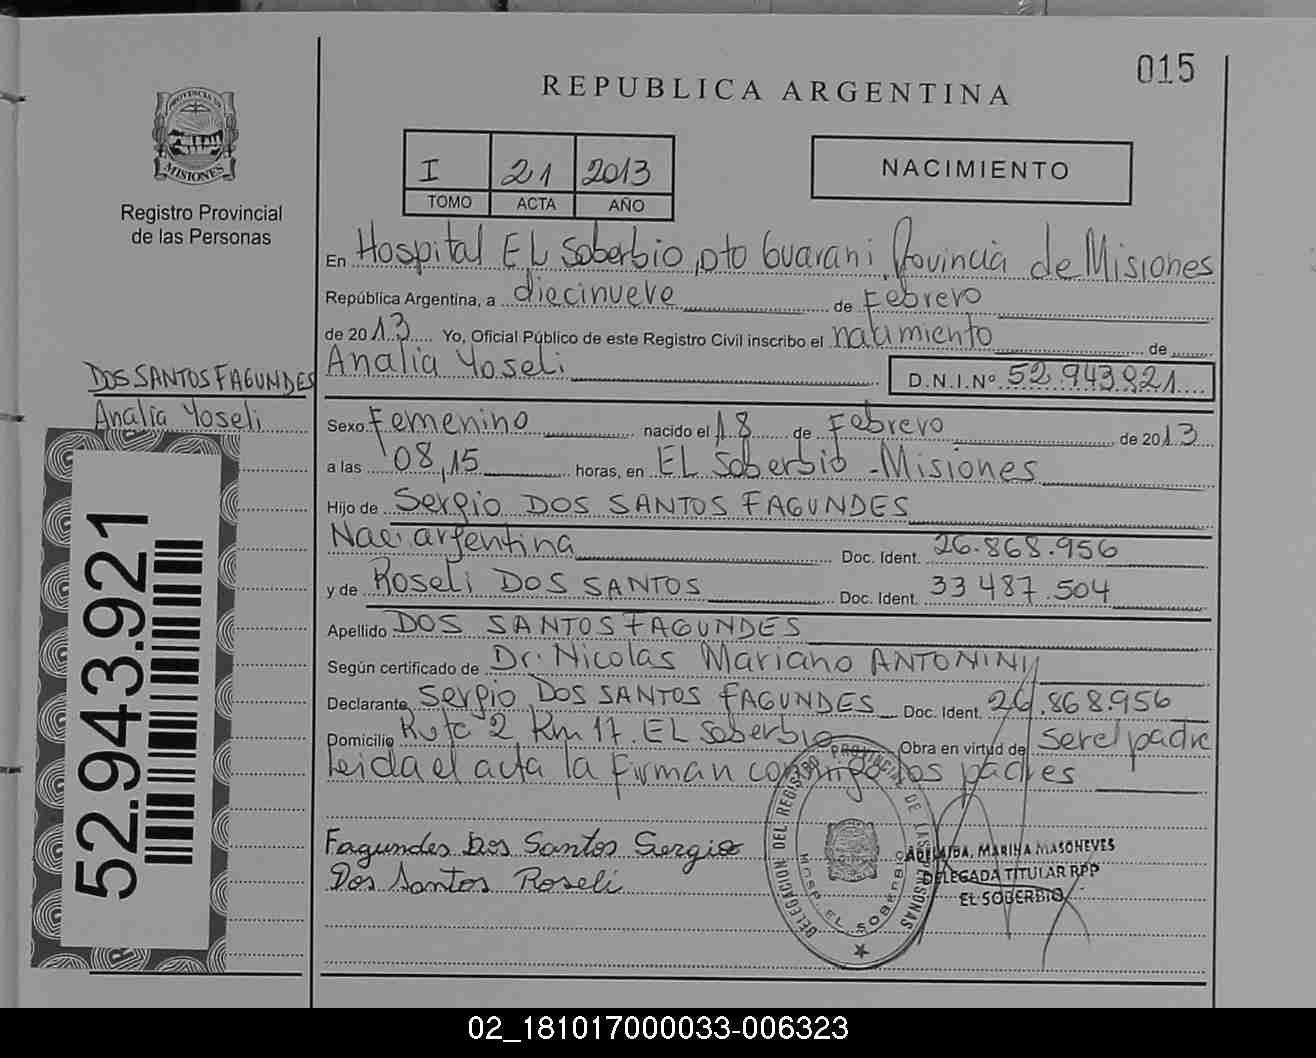 015
REPUBLICA ARGENTINA
PROVINCIA DE
MISIONES
Registro Provincial
de las Personas
I 21 2013
TOMO ACTA AÑO
NACIMIENTO
En Hospital EL Soberbio, Dto Guarani, Provincia de Misiones
República Argentina, a diecinueve de Febrero
de 2013 Yo, Oficial Público de este Registro Civil inscribo el nacimiento de
Analia Yoseli D.N.I.Nº 52.943.921
DOS SANTOS FAGUNDES
Analia Yoseli
Sexo Femenino nacido el 18 de Febrero de 2013
a las 08,15 horas, en EL Soberbio - Misiones
Hijo de Sergio DOS SANTOS FAGUNDES
Nac. argentina Doc. Ident. 26.868.956
y de Roseli DOS SANTOS Doc. Ident. 33 487.504
Apellido DOS SANTOS FAGUNDES
Según certificado de Dr. Nicolas Mariano ANTONINI
Declarante Sergio DOS SANTOS FAGUNDES Doc. Ident. 26.868.956
Domicilio Ruta 2 Km 17. EL Soberbio Obra en virtud de ser el padre
Leida el acta la firman conmigo los padres
Fagundes Dos Santos Sergio
Dos Santos Roseli
DELEGACION DEL REGISTRO PROVINCIAL DE LAS PERSONAS
HOSP. EL SOBERBIO
MARINA MASONEVES
DELEGADA TITULAR RPP
EL SOBERBIO
52.943.921
02_181017000033-006323